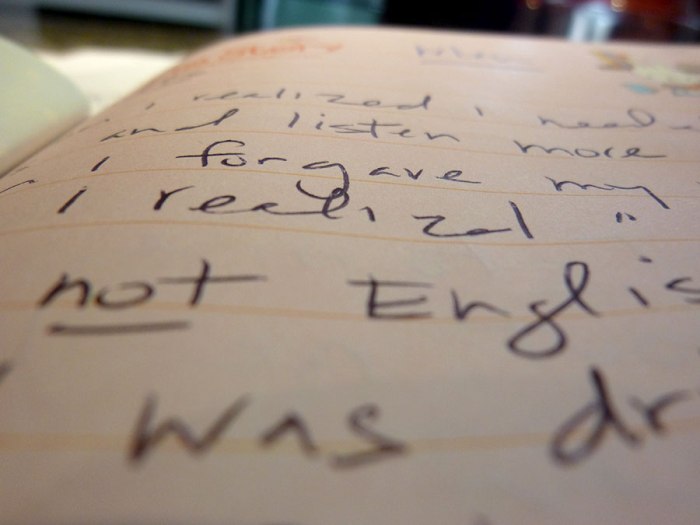 I realized I need
and listen more
I forgave my
I realized "
not Englis
was dr